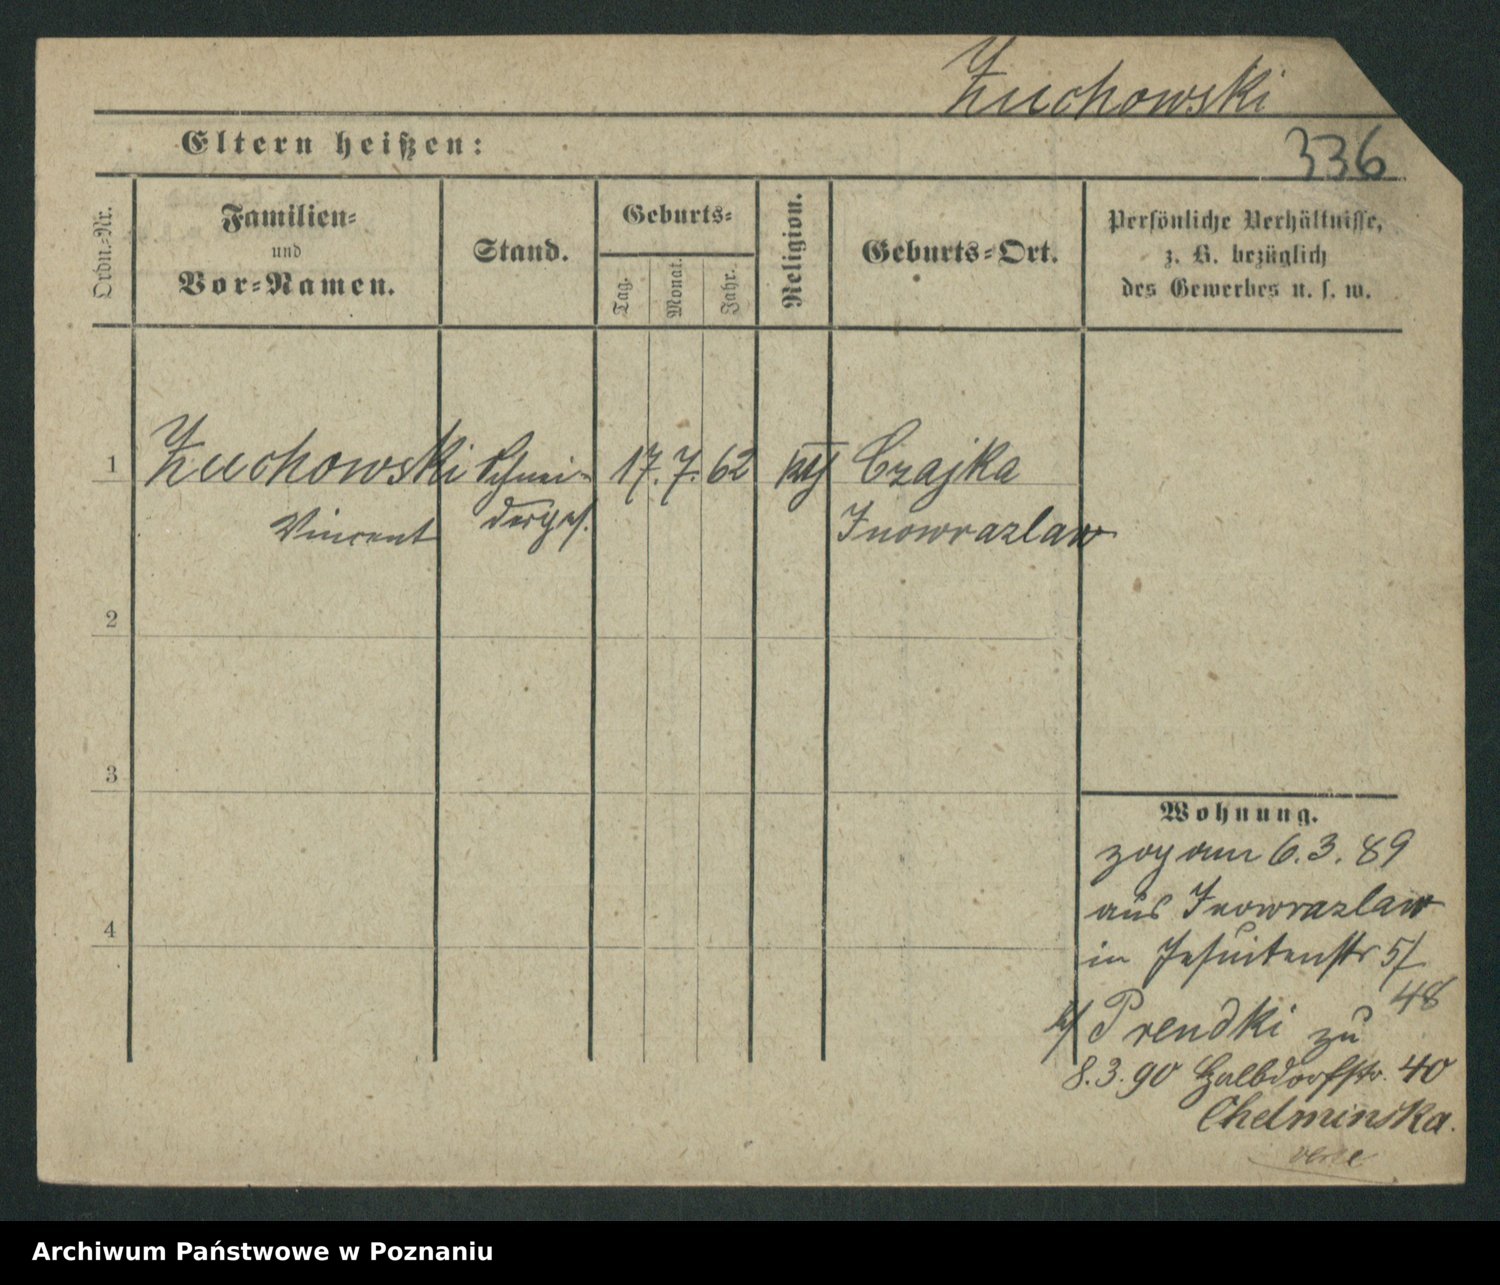 Zuchowski
Eltern heißen:
336
Ordn.-Nr.
Familien-
und
Vor-Namen.
Stand.
Geburts-
Tag.
Monat.
Jahr.
Religion.
Geburts-Ort.
Persönliche Verhältnisse,
z. B. bezüglich
des Gewerbes u. s. w.
1 Zuchowski Schnei- 17. 7. 62 Czajka
Vincent derges. Inowrazlaw
2
3
4
Wohnung.
zog am 6. 3. 89
aus Inowrazlaw
in Jesuitenstr 5/
48
b/ Prendki zu
8. 3. 90 Halbdorfstr. 40
Chelminska.
Archiwum Państwowe w Poznaniu